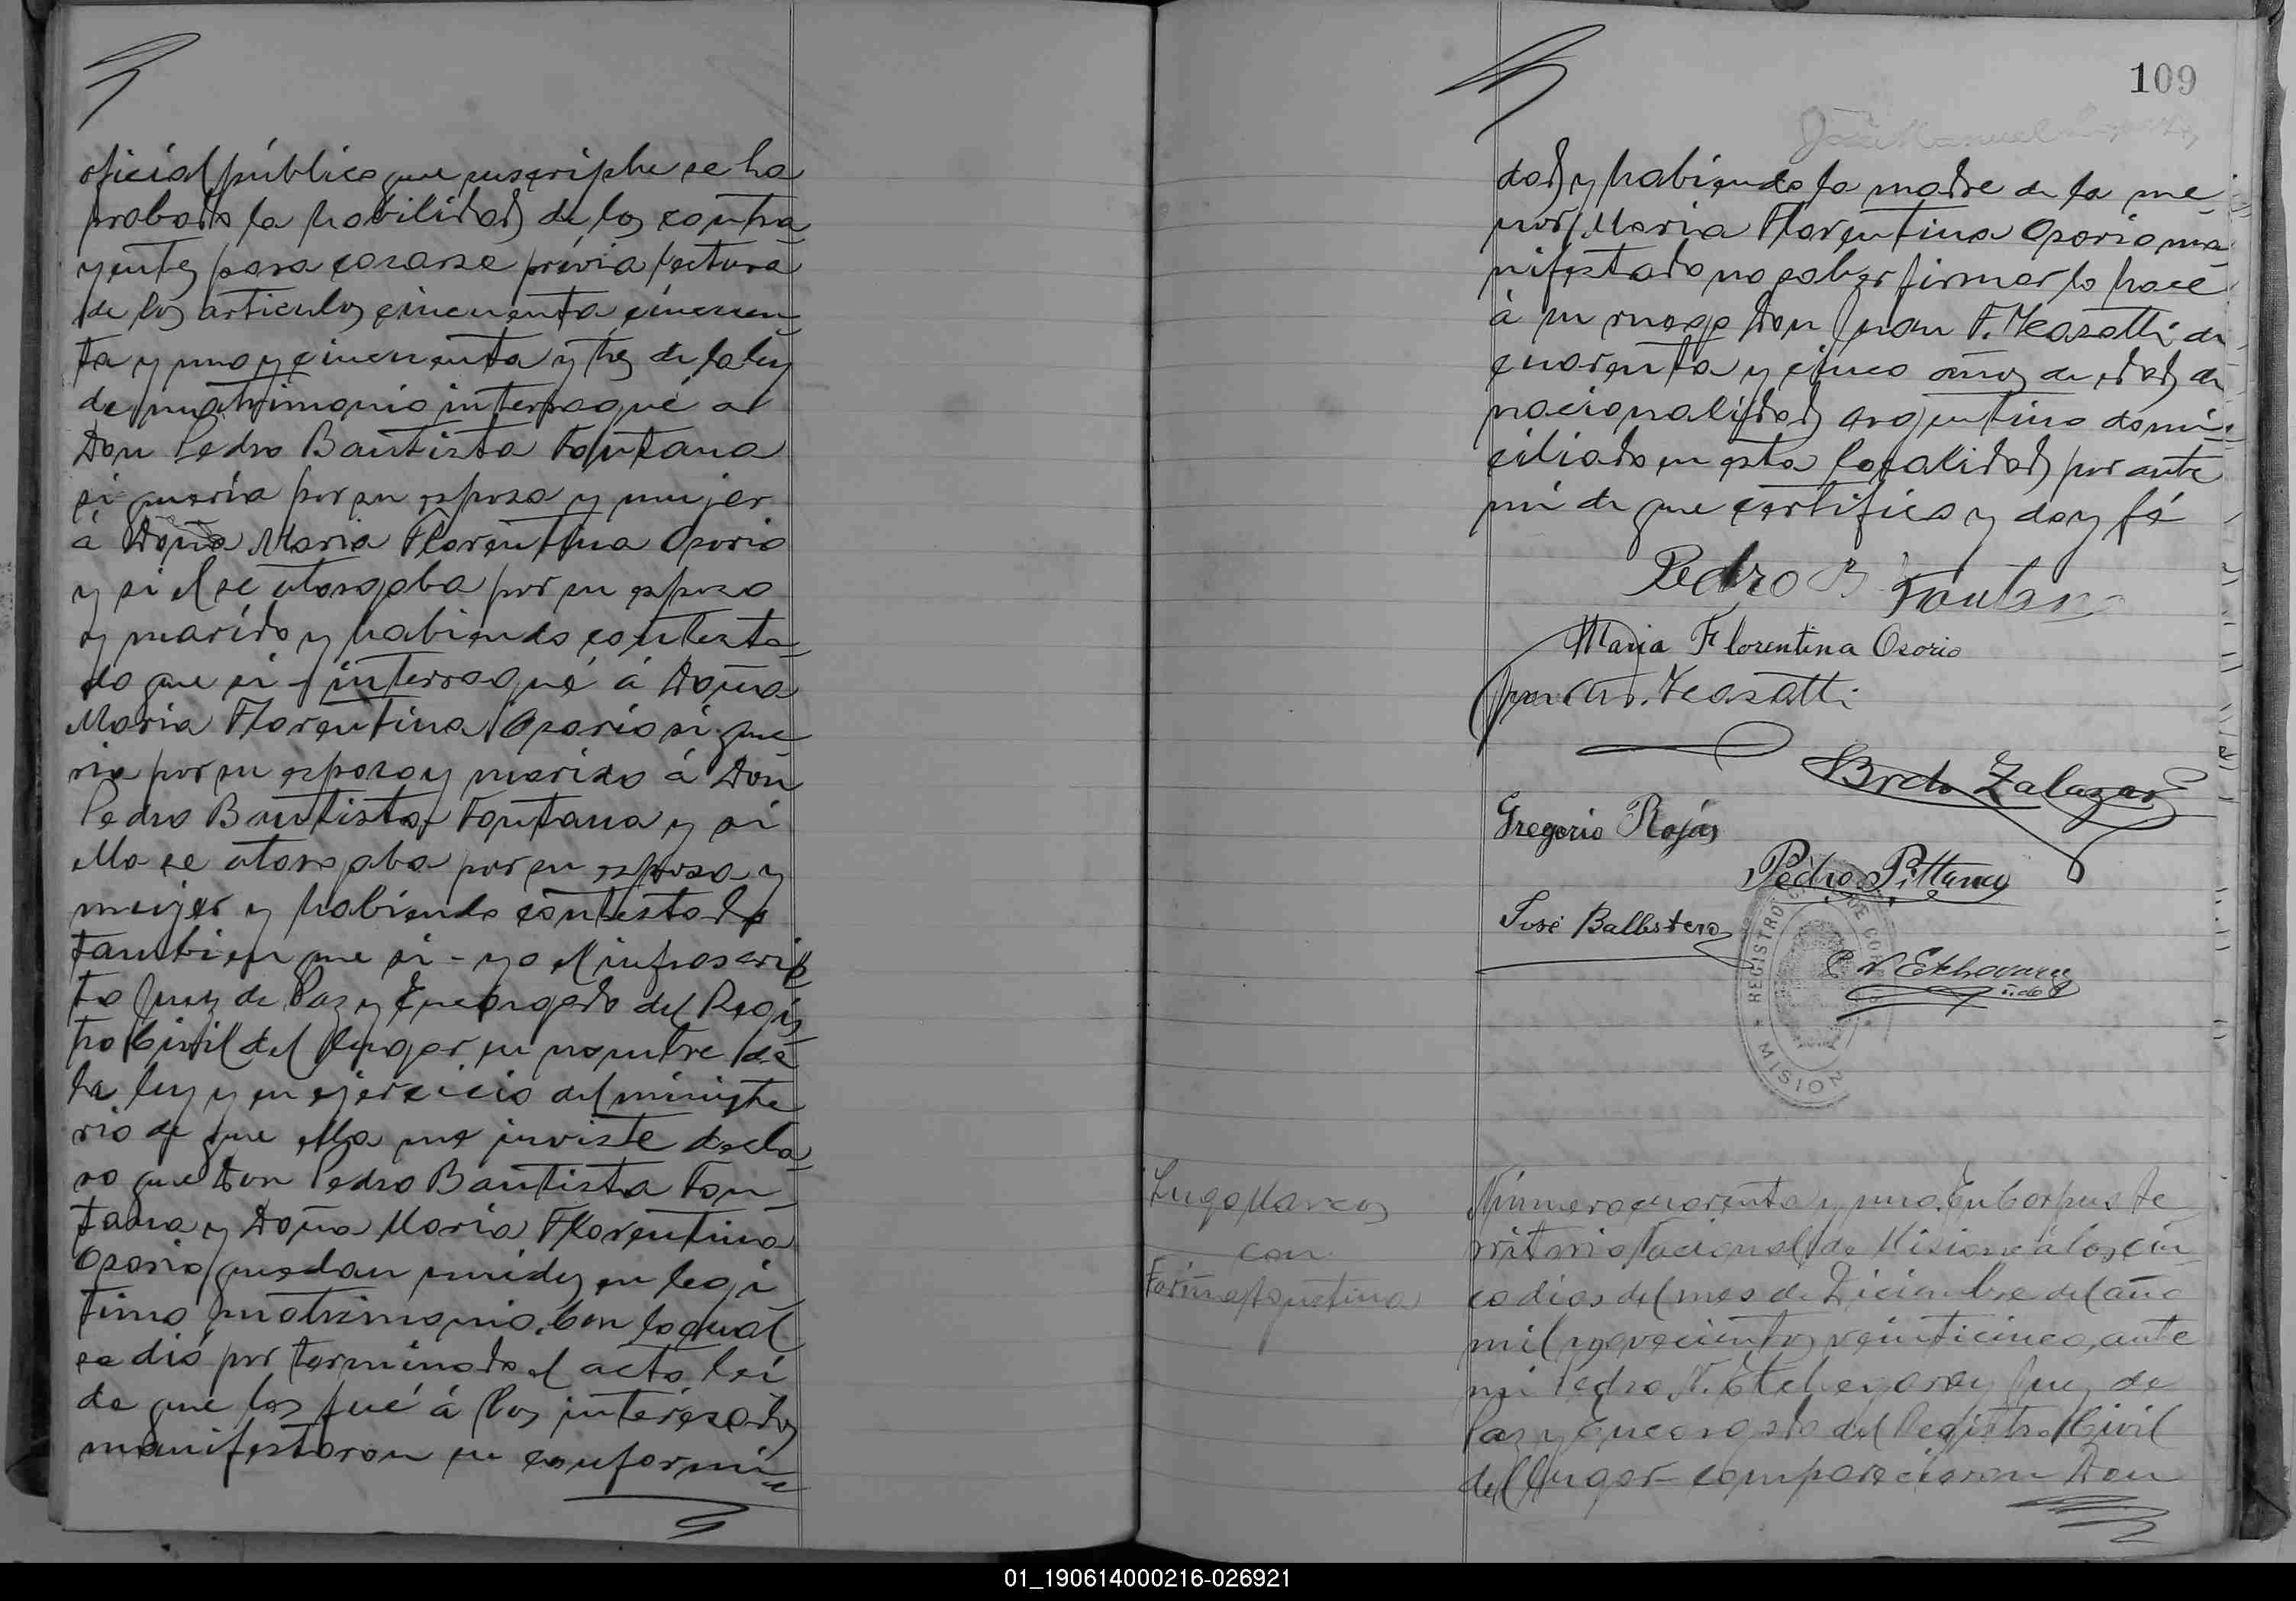 oficial público que suscriphe se ha
probado la habilidad de los contra-
yentes para casarse prévia lectura
de los articulos cincuenta cincuen-
ta y uno y cincuenta y tres de la ley
de matrimonio interrogué a
Don Pedro Bautista Fontana
si queria por su esposa y mujer
á Doña Maria Florentina Osorio
y si el se otorgaba por su esposo
y marido y habiendo contesta-
do que si - interrogué á Doña
Maria Florentina Osorio si que-
ria por su esposo y marido á Don
Pedro Bautista Fontana y si
ella se otorgaba por su esposa y
mujer y habiendo contestado
tambien que si - yo el infrascrip-
to Juez de Paz y Encargado del Regis-
tro Civil del lugar en nombre de
la ley y en ejercicio del ministe-
rio de que ella me inviste decla-
ro que Don Pedro Bautista Fon-
tana y Doña Maria Florentina
Osorio quedan unidos en legi-
timo matrimonio. Con lo cual
se dió por terminado el acto lei-
da que les fué á los interesados
manifestaron su conformi-
109
José Manuel
dad y habiendo la madre de la me-
nor Maria Florentina Osorio ma-
nifestado no saber firmar lo hace
á su ruego Don Juan F. de
cuarenta y cinco años de edad de
nacionalidad argentino domi-
ciliado en esta localidad por ante
mi de que certifico y doy fé
Pedro B Fontana
Maria Florentina Osorio
Juan
Brdo Zalazar
Gregorio Rojas
Pedro Pittana
José Ballestero
P N Etchegaray
REGISTRO CIVIL DE CORPUS
MISIONES
Lugo Marcos
con
Fariña Agustina
Número cuarenta y uno. En Corpus te-
rritorio Nacional de Misiones á los cin-
co dias del mes de Diciembre del año
mil novecientos veinticinco, ante
mi Pedro N. Etchegaray Juez de
Paz y Encargado del Registro Civil
del lugar - comparecieron Don
01_190614000216-026921